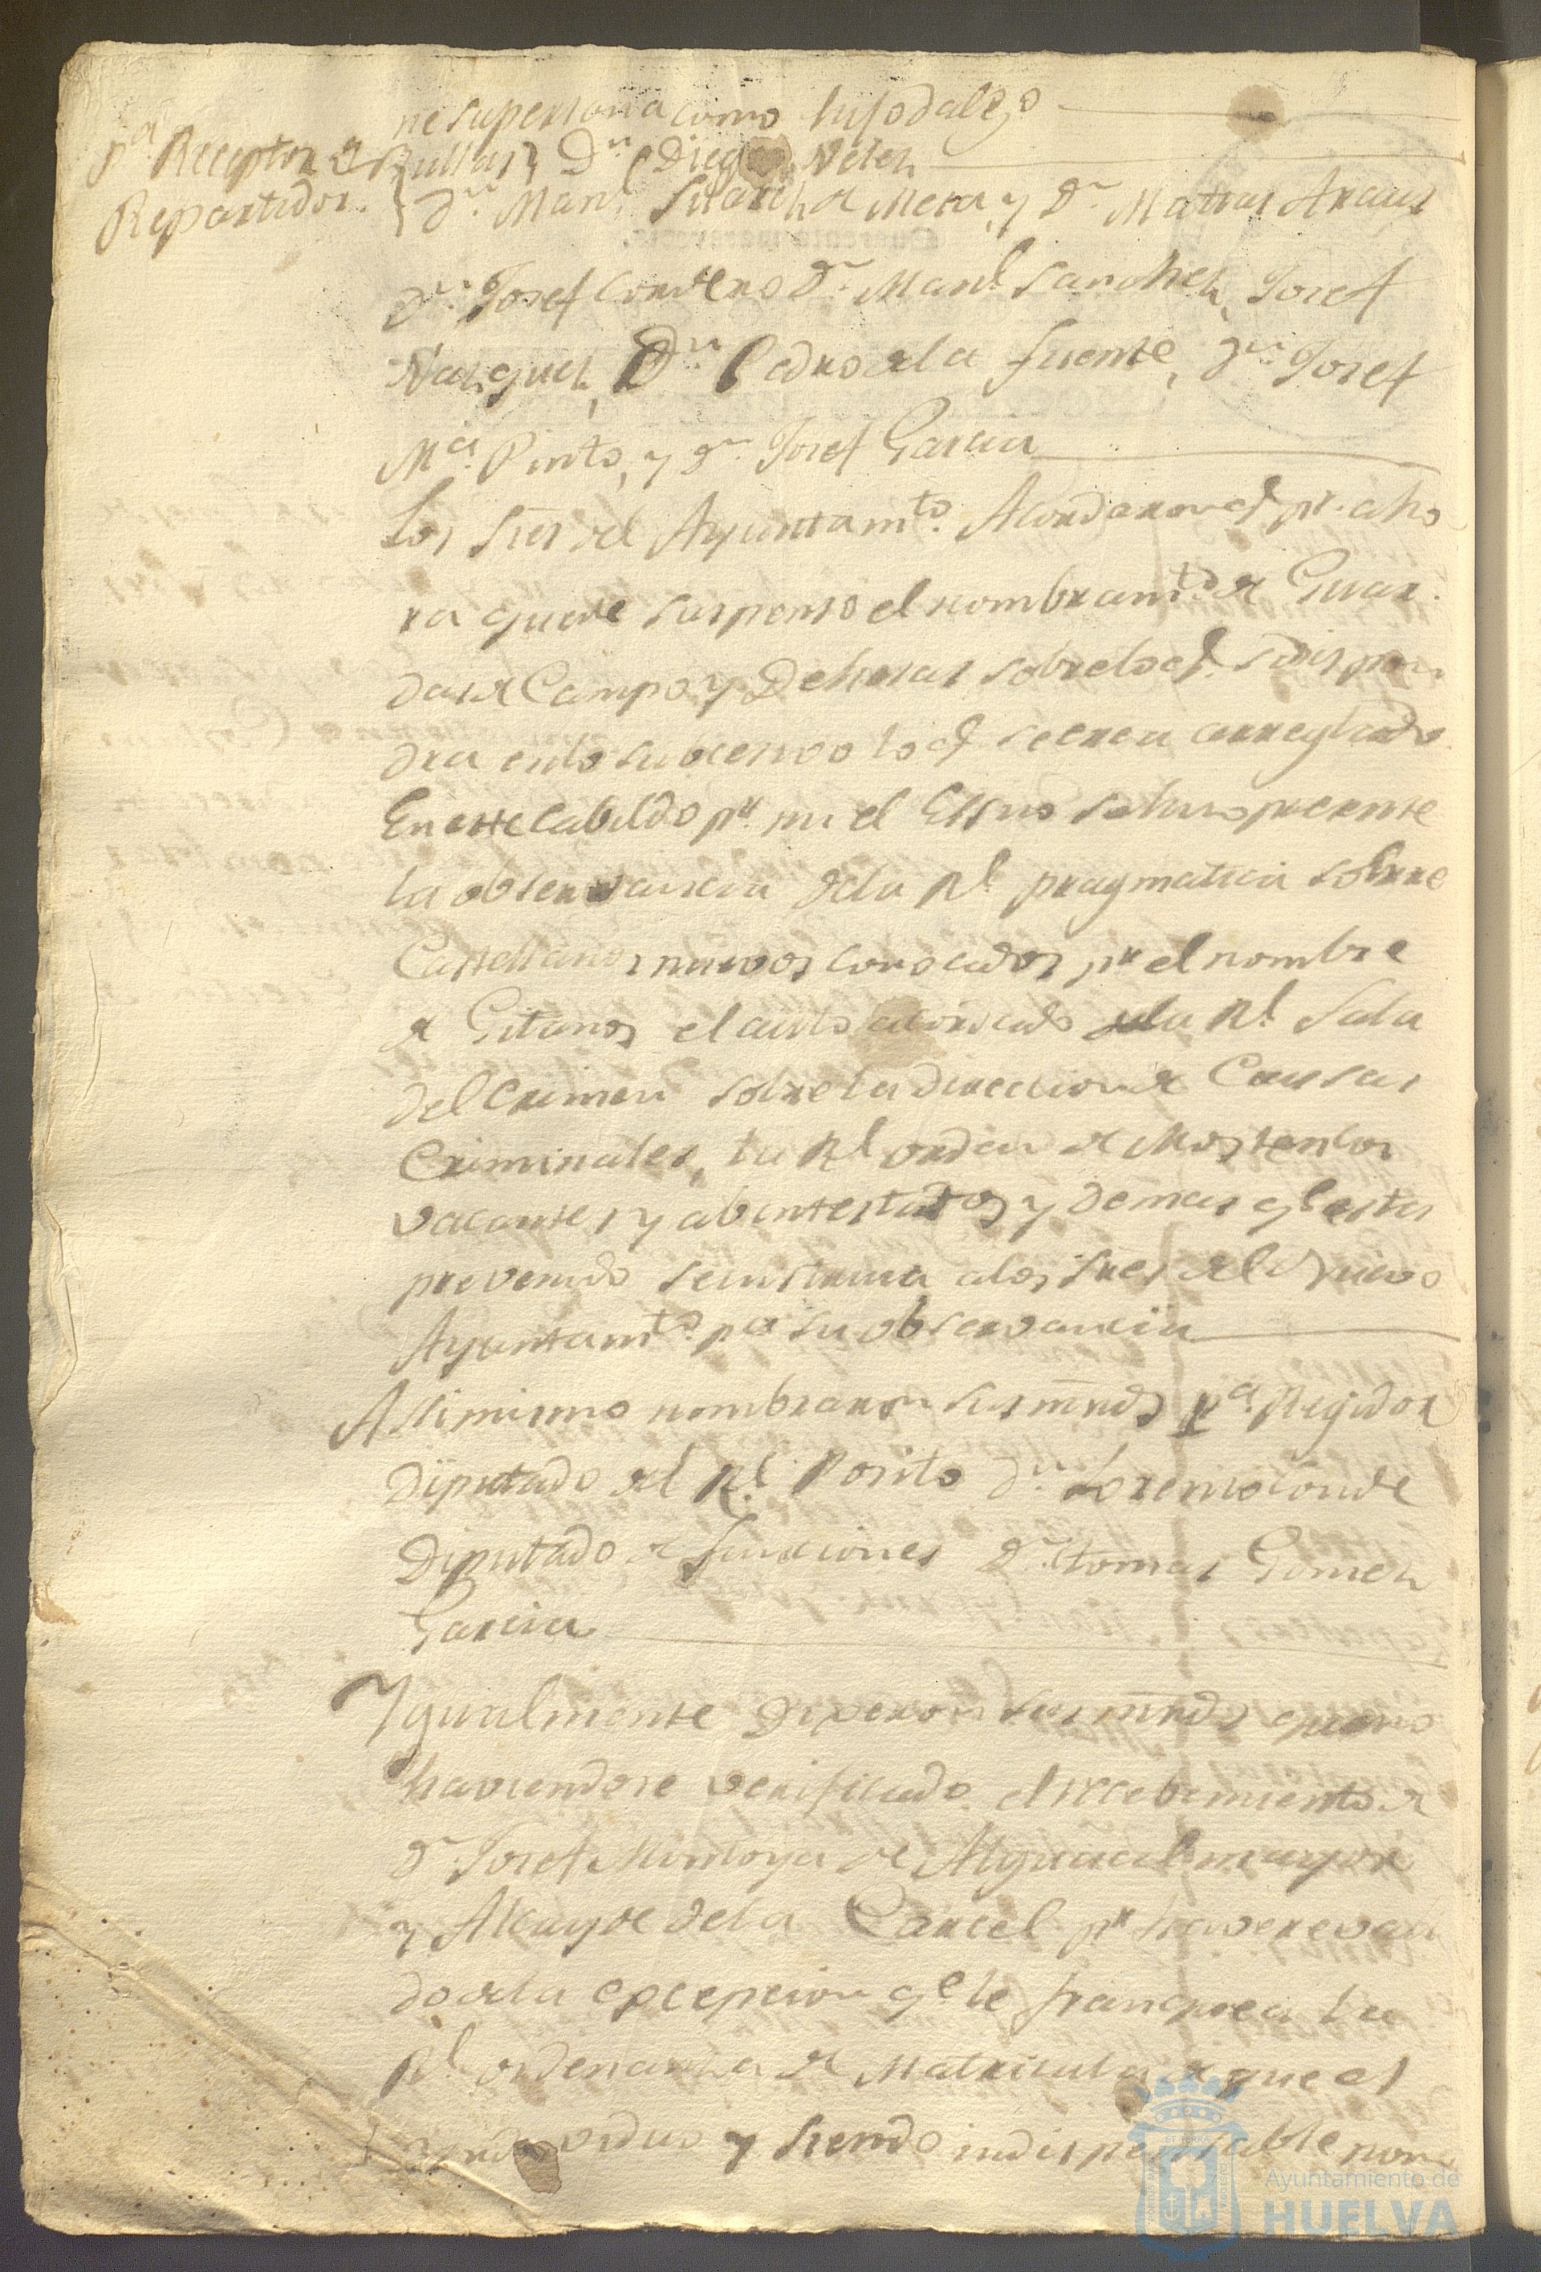 ne su persona como hijodalgo
Pa. Receptor de Bullas Dn. Diego Velez
Repartidor. Dn. Manl. Suarez de Mera, y Dn. Matias Araus
Dn. Josef Cordero Dn. Manl. Sanchez, Josef
Vazquez, Dn. Pedro de la fuente, Dn. Josef
Ma. Pinto, y Dn. Josef Garcia
Los Sres. del Ayuntamto. Acordaron q. pr. aho
ra quede suspenso el nombramto. de Guar
das de Campo y Dehesas sobre lo q. se dispon
dra en lo sucesivo lo q. se crea arreglado
En este Cabildo pr. mi el Essno se hizo presente
la observancia de la Rl. pragmatica sobre
Castellanos nuevos conocidos pr el nombre
de Gitanos el auto acordado de la Rl. Sala
del Crimen sobre la direccion de Causas
Criminales, la Rl. orden de Mostencos
vacantes y abintestados y demas q esta
prevenido se instruia a los Sres del Nuevo
Ayuntamto. pa su observancia
Assimismo nombraron sus mrds pa. Regidor
Diputado del Rl. Posito Dn. Lorenzo Conde
Diputado de funciones Dn. tomas Gomez
Garcia
Igualmente Dixeron sus mrds que no
haviendose verificado el recebimiento de
Dn. Josef Montoya de Alguacil mayor
y Alcayde de la Carcel pr haverse vali
do de la excepcion qe le franquea la
Rl. ordenanza de Matricula de que es
Yndividuo y siendo indispensable nom
Ayuntamiento de
HUELVA